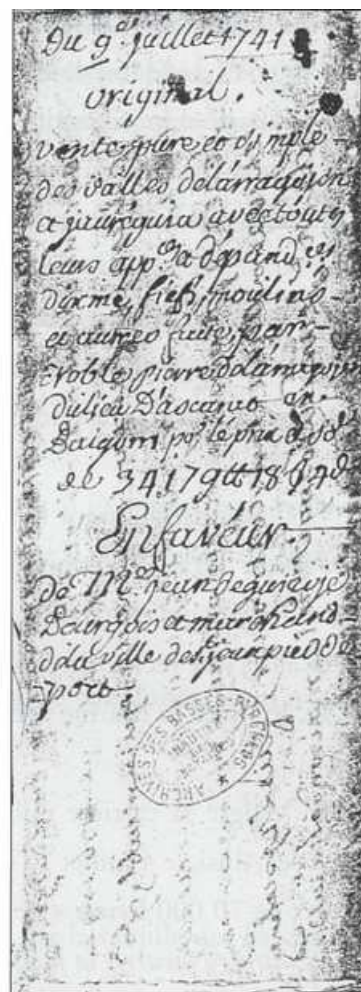 Du 9e juillet 1741
original.
vente pure et simple
des salles de larragoyen
et jaureguia avec toutes
leurs app.ces et dépand.ces
dixme, fiefs, moulins
et autres faite, par
noble pierre de larragoyen
du lieu D'ascarat en
pour le prix
de 34179tt 18s 4d
En faveur
de Mre jean
Bourgois et marchand
de la ville de St jean pied de
port
ARCHIVES DES BASSES-PYRENEES